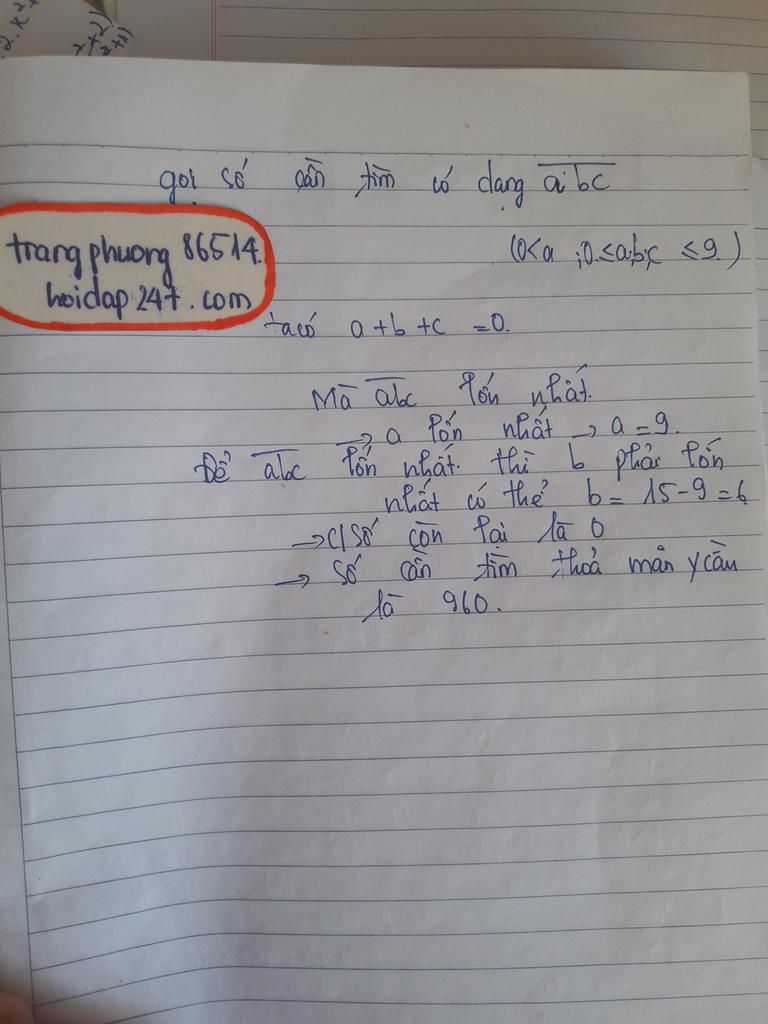 gọi số cần tìm có dạng abc
trang phuong 86514.
hoidap247.com
(0<a ; 0≤a;b;c ≤9.)
ta có a+b+c =0.
Mà abc lớn nhất.
→ a lớn nhất → a=9.
Để abc lớn nhất. thì b phải lớn
nhất có thể b= 15-9=6
→ c/số còn lại là 0
→ số cần tìm thoả mãn y cầu
là 960.